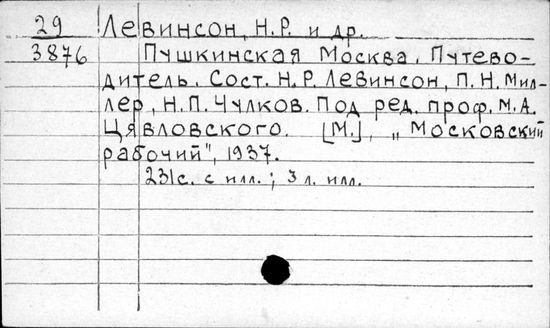 29 Левинсон, Н.Р. и др.
3876 Пушкинская Москва. Путево-
дитель. Сост. Н.Р. Левинсон, П.Н. Мил-
лер, Н.П. Чулков. Под ред. проф. М.А.
Цявловского. [М.], „Московский
рабочий", 1937.
231с. с илл.; 3 л. илл.